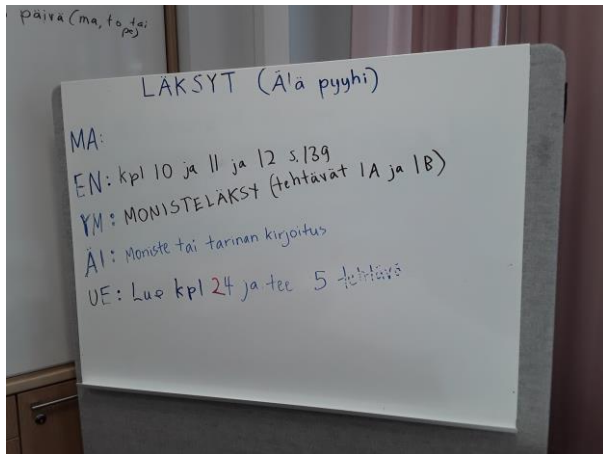 päivä (ma, to, tai
pe)
LÄKSYT (Älä pyyhi)
MA:
EN: kpl 10 ja 11 ja 12 s.139
YM: MONISTELÄKSY (tehtävät 1A ja 1B)
ÄI: Moniste tai tarinan kirjoitus
UE: Lue kpl 24 ja tee 5 tehtävä